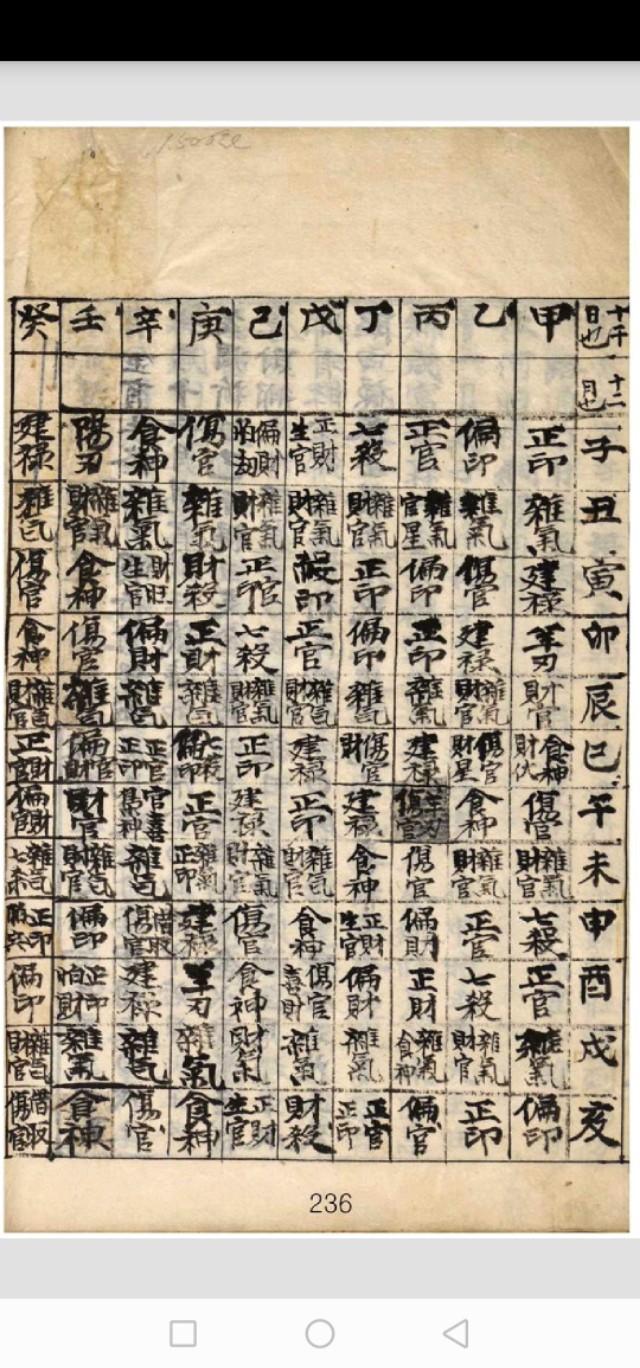 1500
十干日也
十二月也
子
丑
寅
卯
辰
巳
午
未
申
酉
戌
亥
甲
正印
雜氣
建禄
羊刃
財官
食神
傷官
雜氣財官
七殺
正官
雜氣
偏印
乙
偏印
雜氣
傷官
建禄
雜氣財官
傷官財星
食神
雜氣財官
正官
七殺
雜氣財官
正印
丙
正官
雜氣官星
偏印
正印
雜氣
建禄
羊刃傷官
傷官
偏財
正財
雜氣食神
偏官
丁
七殺
雜氣財官
正印
偏印
雜気
傷官財
建禄
食神
正財生官
偏財
雜氣
正官正印
戊
正財生官
雜氣財官
殺印
正官
雜気財官
建禄
正印
雜氣財官
食神
傷官喜財
雜氣
財殺
己
偏財怕劫
雜氣財官
正官印
七殺
雜氣財官
正印
建禄
雜氣財官
傷官
食神
財氣
正財生官
庚
傷官
雜氣
財殺
正財
雜気
七殺偏印
正官
雜氣正印
建禄
羊刃
雜氣
食神
辛
食神
雜氣
財旺生官
偏財
雜気
正官正印
官喜
雜気
借取傷官
建禄
雜気
傷官
壬
陽刃
雜氣財官
食神
傷官
雜気
偏財官
財官
雜気財官
偏印
正印怕財
雜氣
食神
癸
建禄
雜気
傷官
食神
雜気財官
正財官
偏財官
雜気七殺
正印
偏印
雜気財官
借取傷官
236